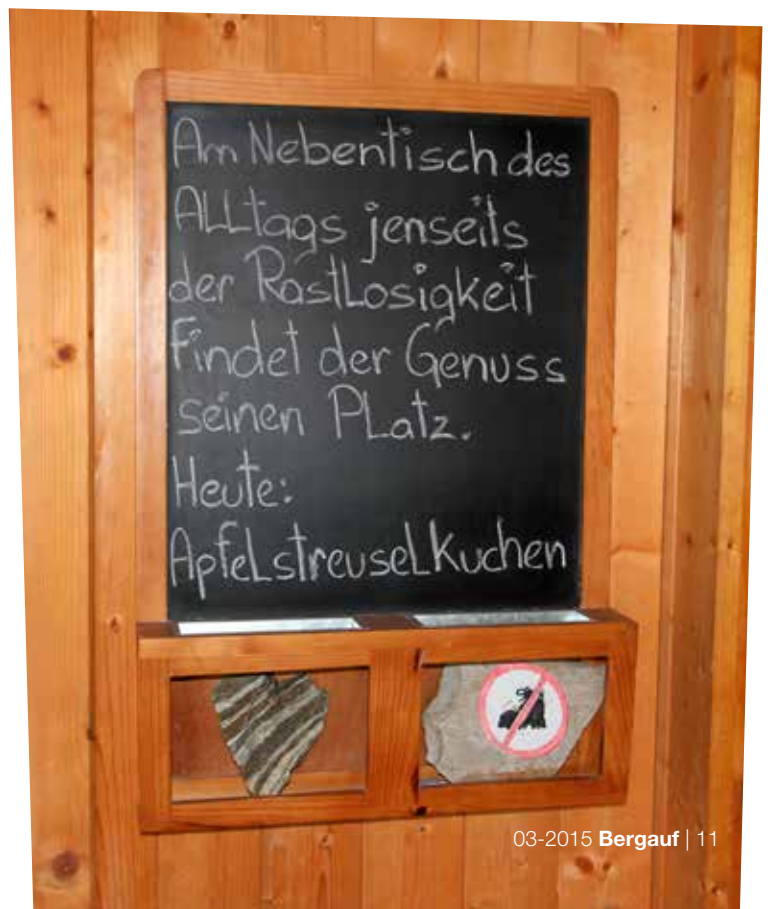 Am Nebentisch des
Alltags jenseits
der Rastlosigkeit
findet der Genuss
seinen Platz.
Heute:
Apfelstreuselkuchen
03-2015 Bergauf | 11